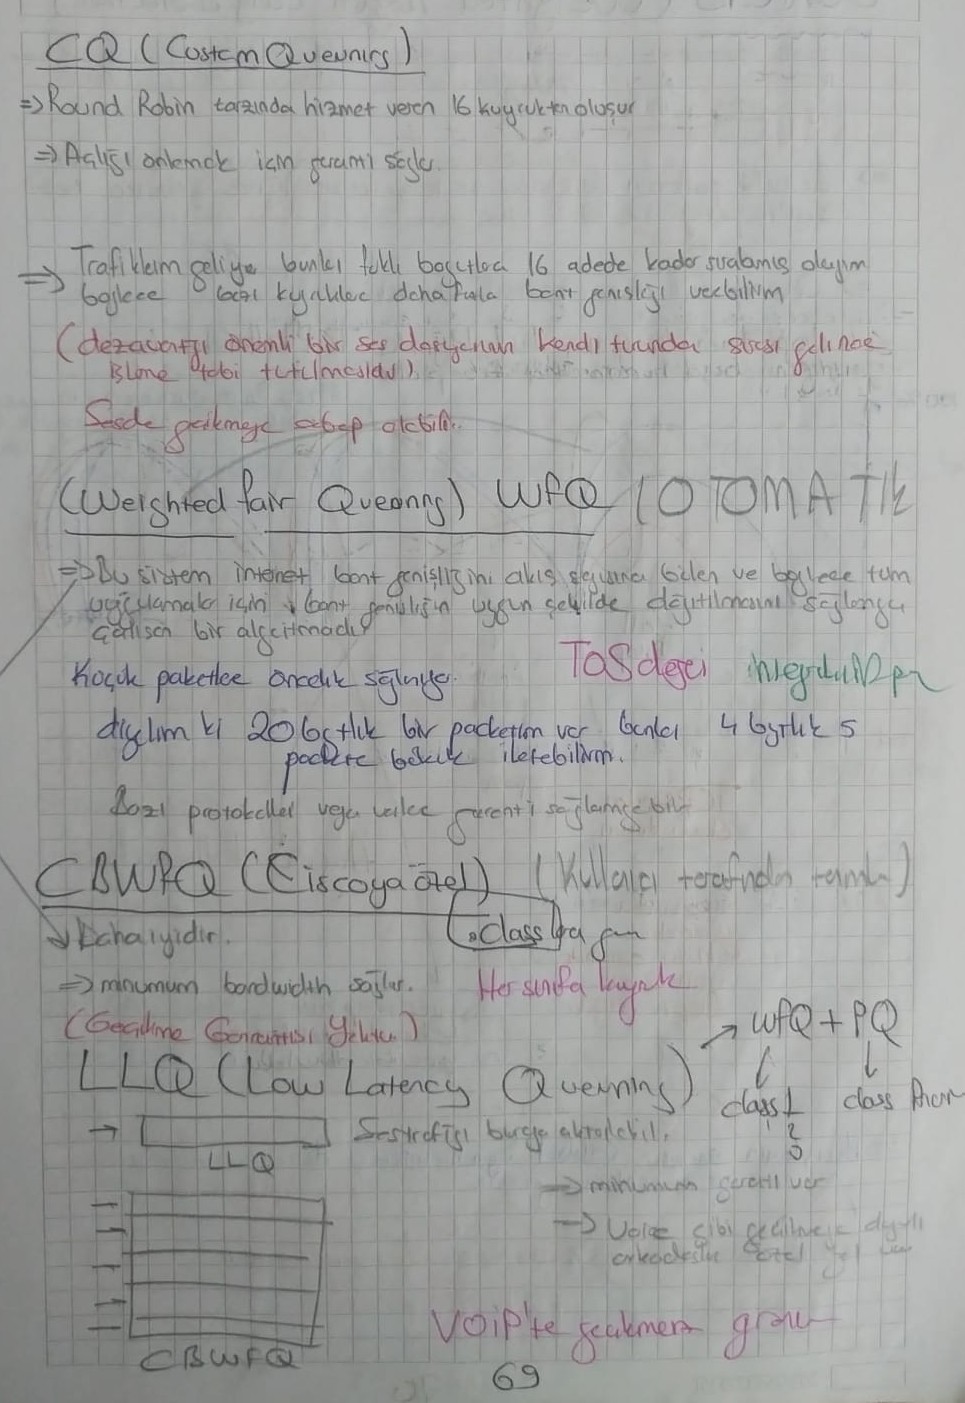 CQ (Custom Queuning)
=> Round Robin tarzında hizmet veren 16 kuyruktan oluşur
=> Açlığı önlemek için garanti sağlar.
=> Trafiklerim geliyor bunları farklı boyutlarda 16 adede kadar sıralamış olayım
böylece bazı kuyruklara daha fazla bant genişliği verebilirim
(dezavantajı önemli bir ses dosyasının kendi turunda sırası gelince
işleme tabi tutulmasıdır).
Seste gecikmeye sebep olabilir.
(Weighted fair Queuning) WFQ (OTOMATİK
=> Bu sistem internet bant genişliğini akış sayısına bölen ve böylece tüm
uygulamalar için bant genişliğin uygun şekilde dağıtılmasını sağlamaya
çalışan bir algoritmadır
Küçük paketlere öncelik sağlanıyor. ToS değeri
diyelim ki 20 bytlık bir packetim var bunları 4 bytlık 5
pakete bölerek iletebilirim.
Bazı protokoller veya veriler garanti sağlamayabilir
CBWFQ (Ciscoya özel) (Kullanıcı tarafından tanımlı)
Daha iyidir. Class'lara göre
=> minumum bandwidth sağlar. Her sınıfa kuyruk
(Gecikme Garantisi Yoktur) → WFQ + PQ
LLQ (Low Latency Queuning) class 1 class
2
3
→ Ses trafiği buraya aktarılabilir.
LLQ
=> minimum garanti var
=> Voice gibi gecikmeye duyarlı
arkadaşlara özel yol var
VOIP'te gecikmeme
CBWFQ
69